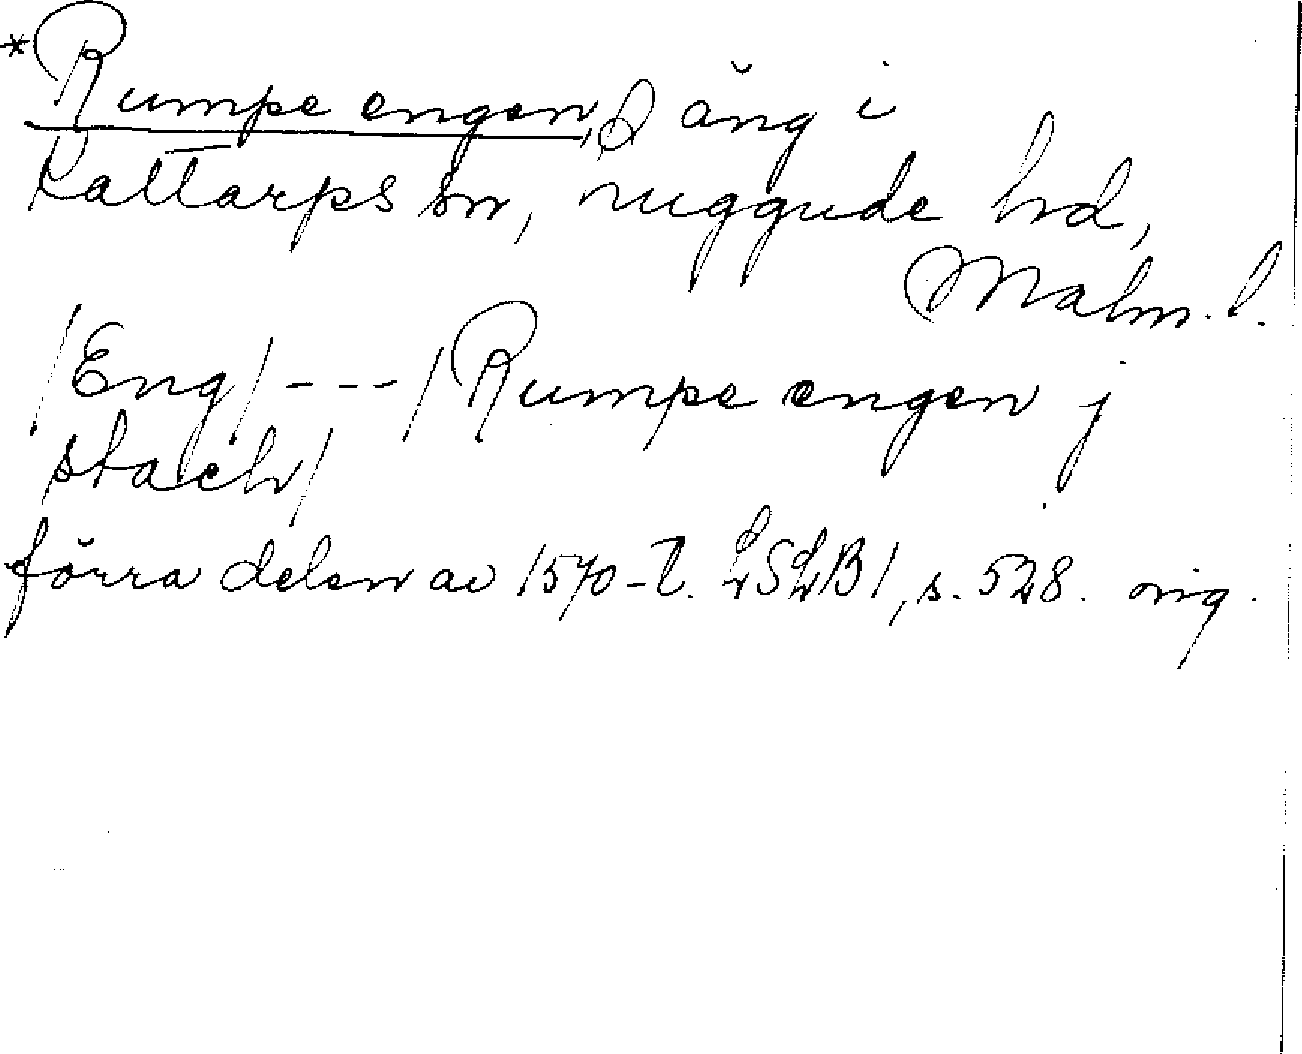 *Rumpe engen, äng i
Kattarps sn, Luggude hrd,
Malm. l.
/Eng/ --- / Rumpe engen j
stach/
förra delen av 1570-t. LSLB1, s. 528. orig.